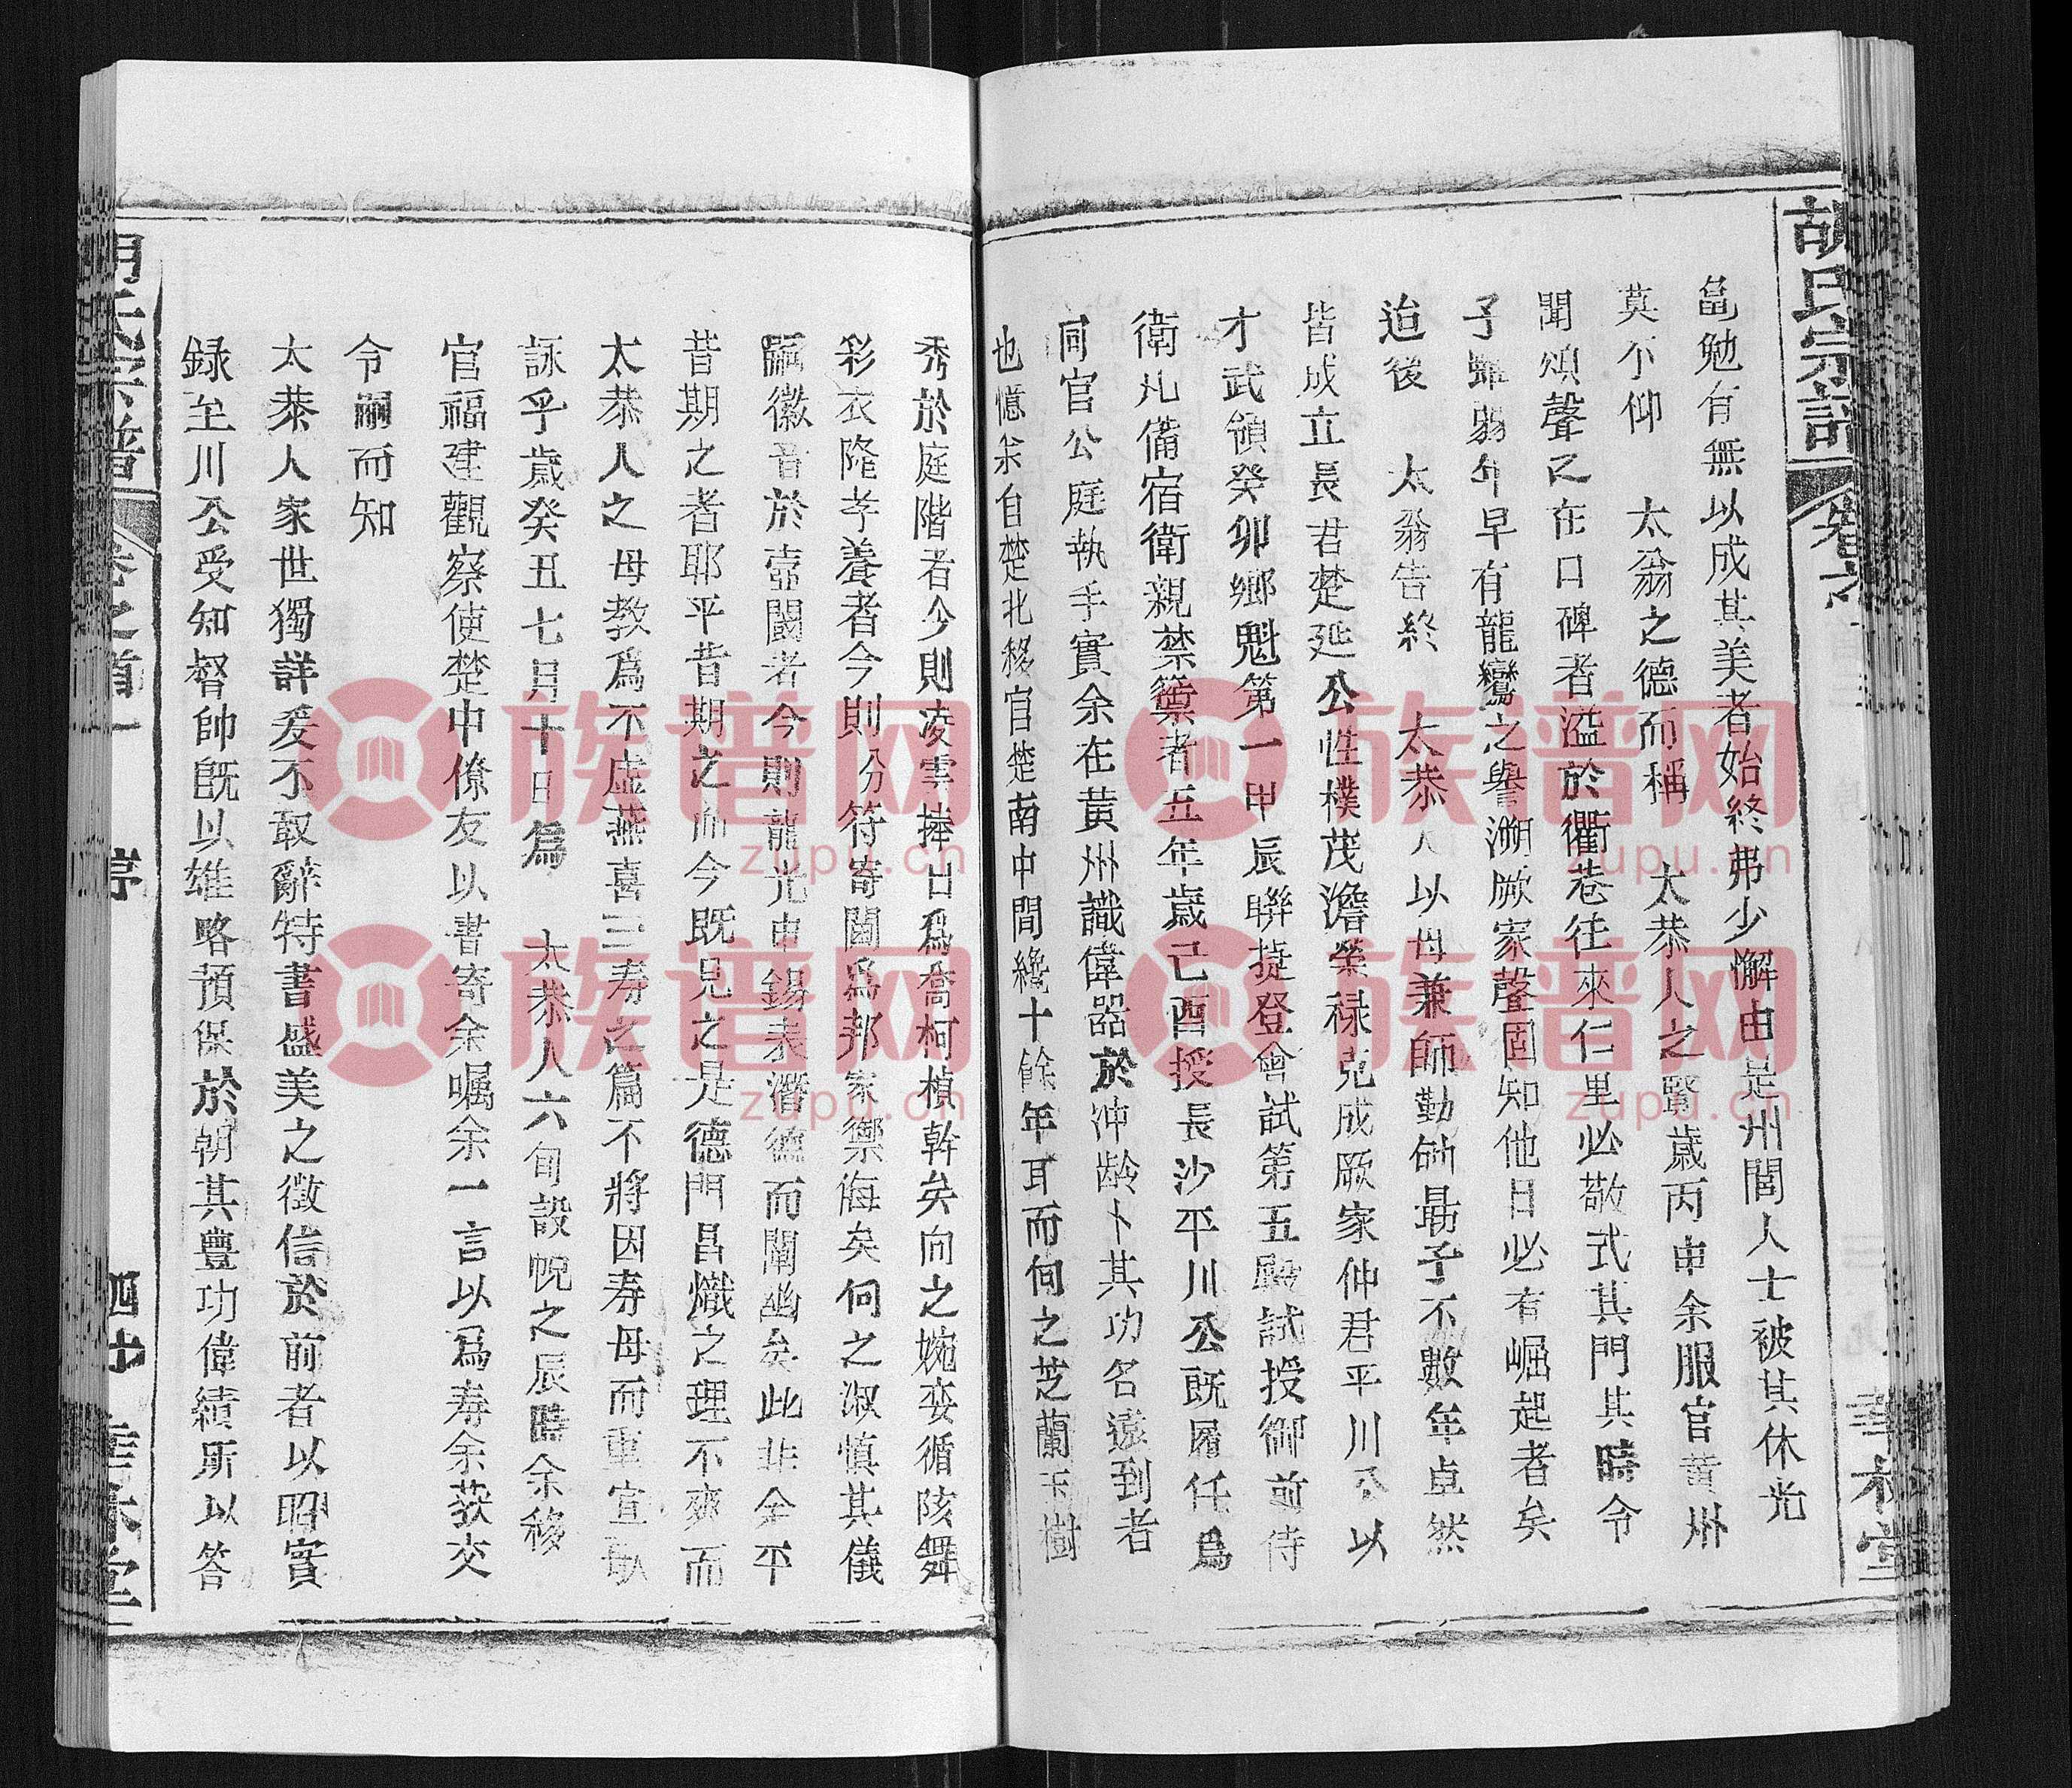 胡氏宗譜
卷之
黽勉有無以成其美者始終弗少懈由是州閭人士被其休光
莫不仰 太翁之德而稱 太恭人之賢歲丙申余服官黄州
聞頌聲之在口碑者溢於衢巷往來仁里必敬式其門其時令
子雖弱年早有龍鸞之譽溯厥家聲固知他日必有崛起者矣
迨後 太翁告終 太恭人以母兼師勤劬勗子不數年卓然
皆成立長君楚延公性樸茂澹榮禄克成厥家仲君平川公以
才武領癸卯鄉魁第一甲辰聯捷登會試第五殿試授御前侍
衛凡備宿衛親禁籞者五年歲己酉授長沙平川公既履任爲
同官公庭執手實余在黄州識偉器於沖齡卜其功名遠到者
也憶余自楚北移官楚南中間纔十餘年耳而何之芝蘭玉樹
秀於庭階者今則凌雲捧日爲喬柯楨幹矣向之婉孌循陔舞
彩衣隆孝養者今則分符寄閫爲邦家禦侮矣何之淑慎其儀
嗣徽音於壼闈者今則龍光申錫表潛德而闡幽矣此非全平
昔期之者耶平昔期之而今既見之是德門昌熾之理不爽而
太恭人之母教爲不虛燕喜三寿之篇不將因寿母而重宣歌
詠乎歲癸丑七月十日爲 太恭人六旬設帨之辰時余移
官福建觀察使楚中僚友以書寄余囑余一言以爲寿余教交
令嗣而知
太恭人家世獨詳爰不敢辭特書盛美之徵信於前者以昭實
録至川公受知督帥旣以雄略預保於朝其豊功偉績所以答
胡氏宗譜
卷之首一
序
四廿
堂
族谱网
zupu.cn
族谱网
zupu.cn
族谱网
zupu.cn
族谱网
zupu.cn